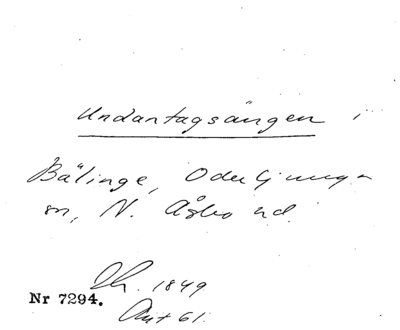 Undantagsängen i
Bälinge, Oderljunga
sn, N. Åsbo hd.
Dh. 1849
Nr 7294.
Ant 61.